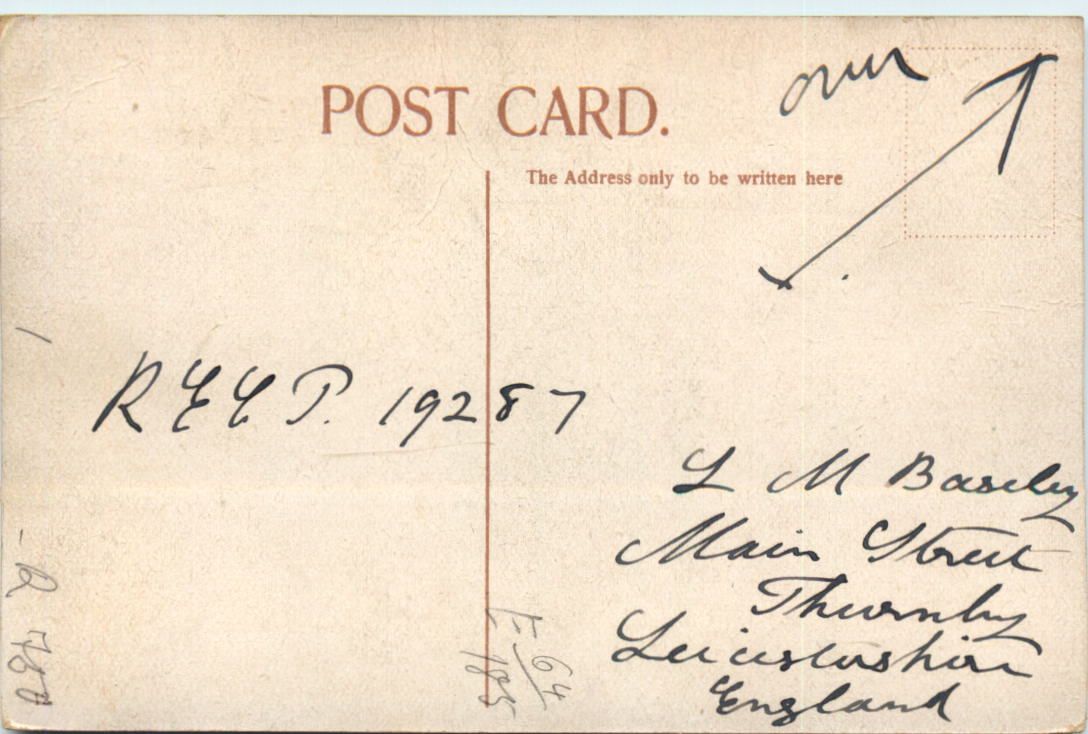 POST CARD.
over
The Address only to be written here
R E E P. 19287
L M Baseley
Main Street
Thurnby
Leicestershire
England
E 64
185